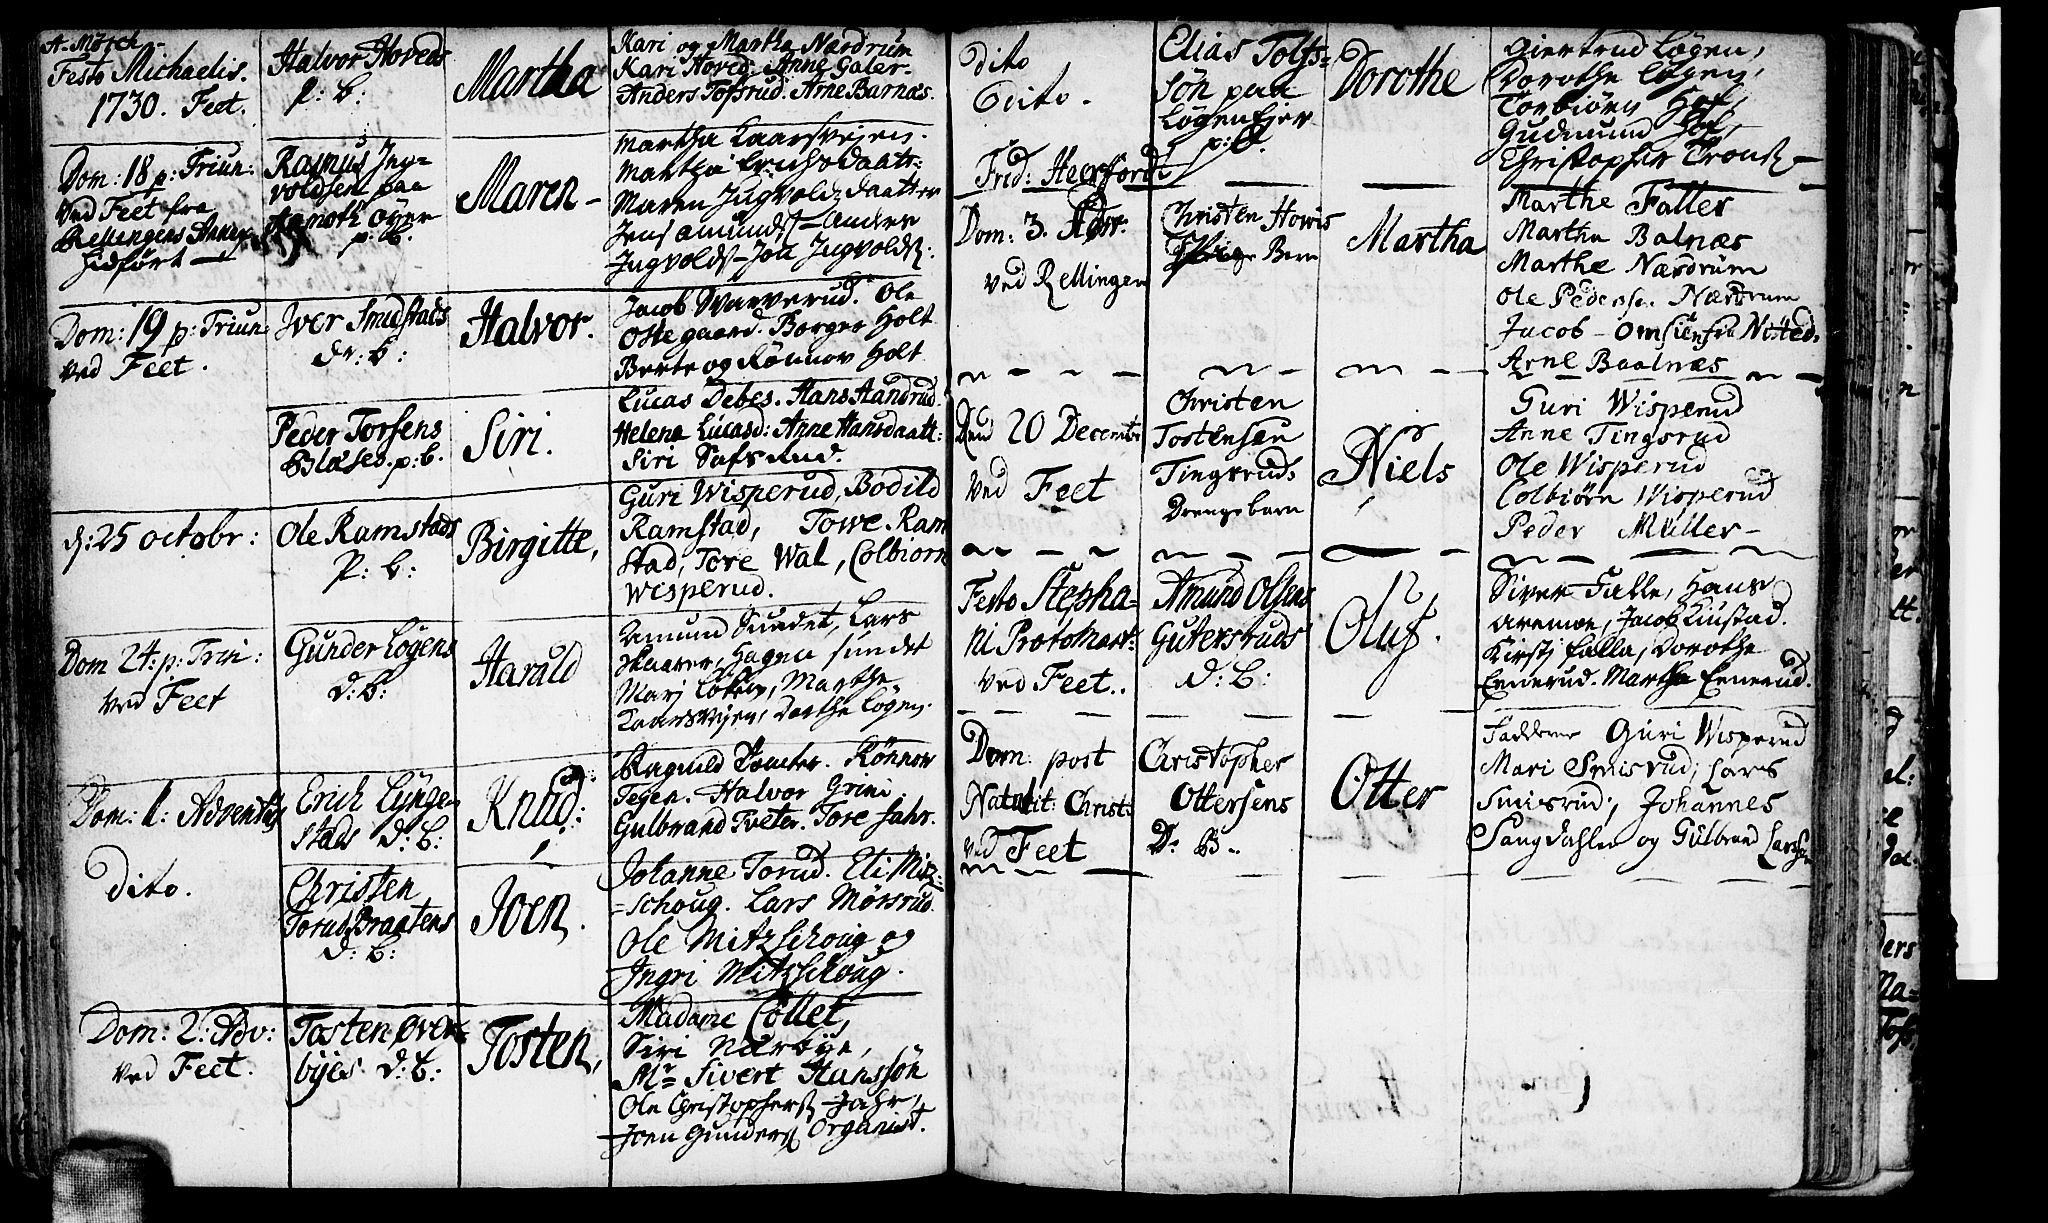 A. Mørch.
Festo Michaelis.
1730. Feet.
Halvor Hoveds
P: b:
Martha
Kari og Martha Nærdrum
Kari Hoved. Anne Galer.
Anders Tofsrud. Arne Barnæs.
Dom: 18 p: Triun:
ved Feet fra
Rellingens Annex
hidført
Rasmus Ing=
voldsen paa
øyer
p: b.
Maren
Martha Kaarsveyen.
Martha Erichsdaatt:
Maren Ingvoldzdaatter
Jens Amunds Anders
Ingvolds Jon Ingvolds.
Dom: 19 p: Triun:
ved Feet.
Iver Smidstads
dr: b:
Halvor.
Jacob Warverud. Ole
Ostegaard. Borger Holt
Berte og Rønnov Holt
Peder Torsens
Blæses. p: b.
Siri.
Lucas Debes. Hans Haudrud.
Helena Lucasd: Anne Hansdaatt:
Siri
d: 25 octobr:
Ole Ramstads
P: b:
Birgitte,
Guri Wisperud, Bodild
Ramstad, Towe Ram
stad, Tore Wal, Colbiørn
Wisperud.
Dom 24: p: Trin:
ved Feet
Gunder Løgens
d: b:
Harald
Amund Sundet, Lars
Skaarer, Hagen Sundet
Mari Løken, Marthe
Kaarsveyen, Dorthe Løgen.
Dom: 1: Adventus
Erich Lynge
stads d: b:
Knud:
Ragnild Tomter. Rønnow
Tegen. Halvor Grini.
Gulbrand Tveter. Tore Jahr.
dito.
Christen
Torud Braatens
d: b:
Joen.
Johanne Torud. Eli Mitz=
=schoug. Lars Mørsrud.
Ole Mitzschoug og
Ingri Mitzschoug.
Dom: 2: Adv:
ved Feet.
Tosten Øver=
byes d: b:
Tosten,
Madame Collet,
Siri Nærbye,
Mr Sivert Hanssøn
Ole Christophers Jahr,
Joen Gunders Organist.
dito
Ocito.
Elias Tolfs=
søn paa
Løgen Ejer
p: b.
Dorothe
Giertrud Løgen,
Dorothe Løgen,
Torbiørn Hof,
Gudmund Hof,
Christopher Trons
Frid: Heerfordt
Dom: 3. Adv:
ved Rellingen
Christen Howis
Pige Barn
Martha
Marthe Faller
Martha Balnæs
Marthe Nærdrum
Ole Peders. Nærdrum
Jacob
Arne Baalnæs
Den 20 Decembr
ved Feet
Christen
Tostensen
Tingsruds
Drengebarn
Niels
Guri Wisperud
Anne Tingsrud
Ole Wisperud
Colbiørn Wisperud
Peder Müller
Festo Stepha=
ni Protomart:
ved Feet..
Amund Olsens
Gutersruds
d: b:
Oluf.
Siver Falle, Hans
Aremoe, Jacob Kiustad.
Kirstj Falla, Dorothe
Eenerud. Martha Eenerud.
Dom: post
Natalit: Christ:
ved Feet
Christopher
Ottersens
D. B.
Otter
Faddere Guri Wisperud
Mari Smisrud, Lars
Smisrud, Johannes
Sangdahlen og Gulbrand Larssen